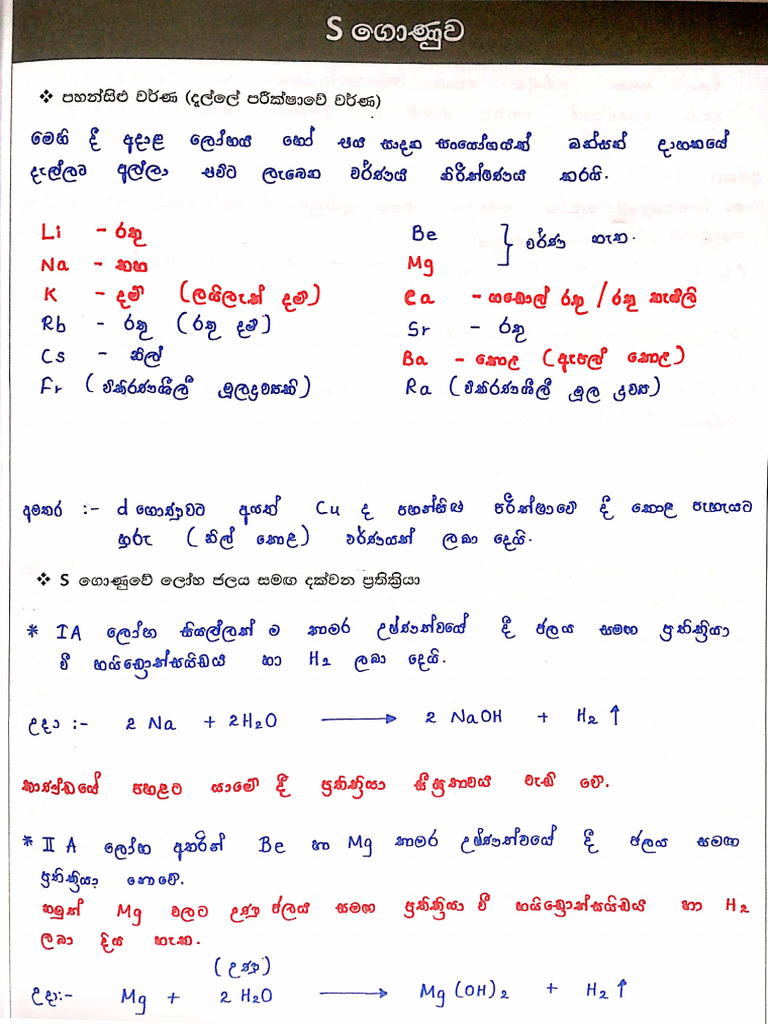 S ගොණුව
❖ පහන්සිළු වර්ණ (දැල්ලේ පරීක්ෂාවේ වර්ණ)
මෙහි දී අදාළ ලෝහය හෝ එය සාදන සංයෝගයක් බන්සන් දාහකයේ
දැල්ලට අල්ලා එවිට ලැබෙන වර්ණය නිරීක්ෂණය කරයි.
Li - රතු
Na - කහ
K - දම් (ලයිලැක් දම්)
Rb - රතු (රතු දම්)
Cs - නිල්
Fr (විකිරණශීලී මූලද්‍රව්‍යකි)
Be
Mg } වර්ණ නැත.
Ca - ගඩොල් රතු / රතු තැඹිලි
Sr - රතු
Ba - කොළ (ඇපල් කොළ)
Ra (විකිරණශීලී මූල ද්‍රව්‍ය)
අමතර :- d ගොණුවට අයත් Cu ද පහන්සිළු පරීක්ෂාවේ දී කොළ පැහැයට
හුරු (නිල් කොළ) වර්ණයක් ලබා දෙයි.
❖ S ගොණුවේ ලෝහ ජලය සමඟ දක්වන ප්‍රතික්‍රියා
* IA ලෝහ සියල්ලක් ම කාමර උෂ්ණත්වයේ දී ජලය සමඟ ප්‍රතික්‍රියා
වී හයිඩ්‍රොක්සයිඩය හා H₂ ලබා දෙයි.
උදා :- 2 Na + 2H₂O ⟶ 2 NaOH + H₂ ↑
කාණ්ඩයේ පහළට යාමේ දී ප්‍රතික්‍රියා සීඝ්‍රතාවය වැඩි වේ.
* II A ලෝහ අතරින් Be හා Mg කාමර උෂ්ණත්වයේ දී ජලය සමඟ
ප්‍රතික්‍රියා නොවේ.
නමුත් Mg වලට උණු ජලය සමඟ ප්‍රතික්‍රියා වී හයිඩ්‍රොක්සයිඩය හා H₂
ලබා දිය හැක.
(උණු)
උදා:- Mg + 2 H₂O ⟶ Mg (OH)₂ + H₂ ↑